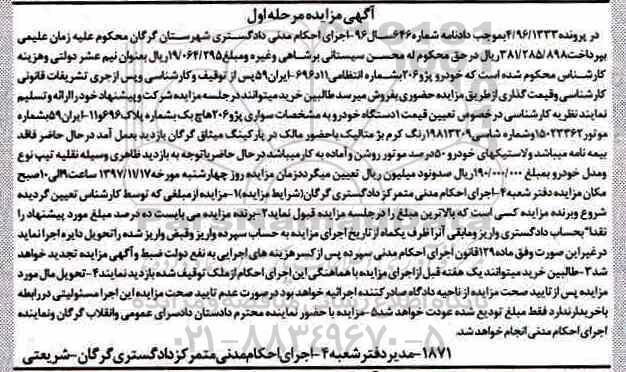 آگهی مزایده مرحله اول
در پرونده ۴/۹۶/۱۳۳۳ بموجب دادنامه شماره ۶۴۶ سال ۹۶-اجرای احکام مدنی دادگستری شهرستان گرگان محکوم علیه زمان علیمی
بپرداخت ۳۸۱/۲۸۵/۸۹۸ ریال در حق محکوم له محسن سیستانی برشاهی و غیره ومبلغ ۱۹/۰۶۴/۲۹۵ ریال بعنوان نیم عشر دولتی و هزینه
کارشناس محکوم شده است که خودرو پژو ۲۰۶ بشماره انتظامی ۱۱ د ۶۹۶-ایران ۵۹ پس از توقیف و کارشناسی وپس ازجری تشریفات قانونی
کارشناسی وقیمت گذاری از طریق مزایده حضوری بفروش میرسد طالبین خرید میتوانند در جلسه مزایده شرکت و پیشنهاد خود را ارائه و تسلیم
نمایند نظریه کارشناسی در خصوص تعیین قیمت ۱ دستگاه خودرو به مشخصات سواری پژو ۲۰۶ هاچ بک بشماره پلاک ۶۹۶ و ۱۱-ایران ۵۹ بشماره
موتور ۱۵۰۲۳۳۶۲ وشماره شاسی ۱۹۸۱۳۲۰۹ رنگ کرم بژ متالیک باحضور مالک در پارکینگ میثاق گرگان بازدید بعمل آمد در حال حاضر فاقد
بیمه نامه میباشد ولاستیکهای خودرو ۵۰ درصد موتور روشن و آماده به کارمیباشد درحال حاضر باتوجه به بازدید ظاهری وسیله نقلیه تیپ نوع
ومدل خودرو بمبلغ ۱۹۰/۰۰۰/۰۰۰ ریال صدونود میلیون ریال تعیین میگردد زمان مزایده روز چهارشنبه مورخه ۱۳۹۷/۱۱/۱۷ ساعت ۹ الی ۱۰ صبح
مکان مزایده دفتر شعبه ۴-اجرای احکام مدنی متمرکز دادگستری گرگان (شرایط مزایده) ۱-مزایده از مبلغی که توسط کارشناس تعیین گردیده
شروع وبرنده مزایده کسی است که بالاترین مبلغ را در جلسه مزایده قبول نماید ۲-برنده مزایده می بایست ده درصد مبلغ مورد پیشنهاد را
نقدا" بحساب دادگستری واریز ومابقی آنرا ظرف یکماه از تاریخ اجرای مزایده به حساب سپرده واریز وقبض واریز شده را تحویل دایره اجرا نماید
در غیر این صورت وفق ماده ۱۲۹ قانون اجرای احکام مدنی سپرده پس از کسر هزینه های اجرایی به نفع دولت ضبط و آگهی مزایده تجدید خواهد
شد ۳-طالبین خرید میتوانند یک هفته قبل از اجرای مزایده با هماهنگی این اجرای احکام از ملک توقیف شده بازدید نمایند ۴-تحویل مال مورد
مزایده پس از تایید صحت مزایده از ناحیه دادگاه صادر کننده اجرائیه خواهد بود در صورت عدم تایید صحت مزایده این اجرا مسئولیتی در رابطه
با خریدار ندارد فقط مبلغ تودیع شده عودت خواهد شد ۵-مزایده با حضور نماینده محترم دادستان دادسرای عمومی وانقلاب گرگان ونماینده
اجرای احکام مدنی انجام خواهد شد.
۱۸۷۱-مدیر دفتر شعبه ۴-اجرای احکام مدنی متمرکز دادگستری گرگان-شریعتی
۰۲۱-۸۸۳۴۹۶۷۰-۵